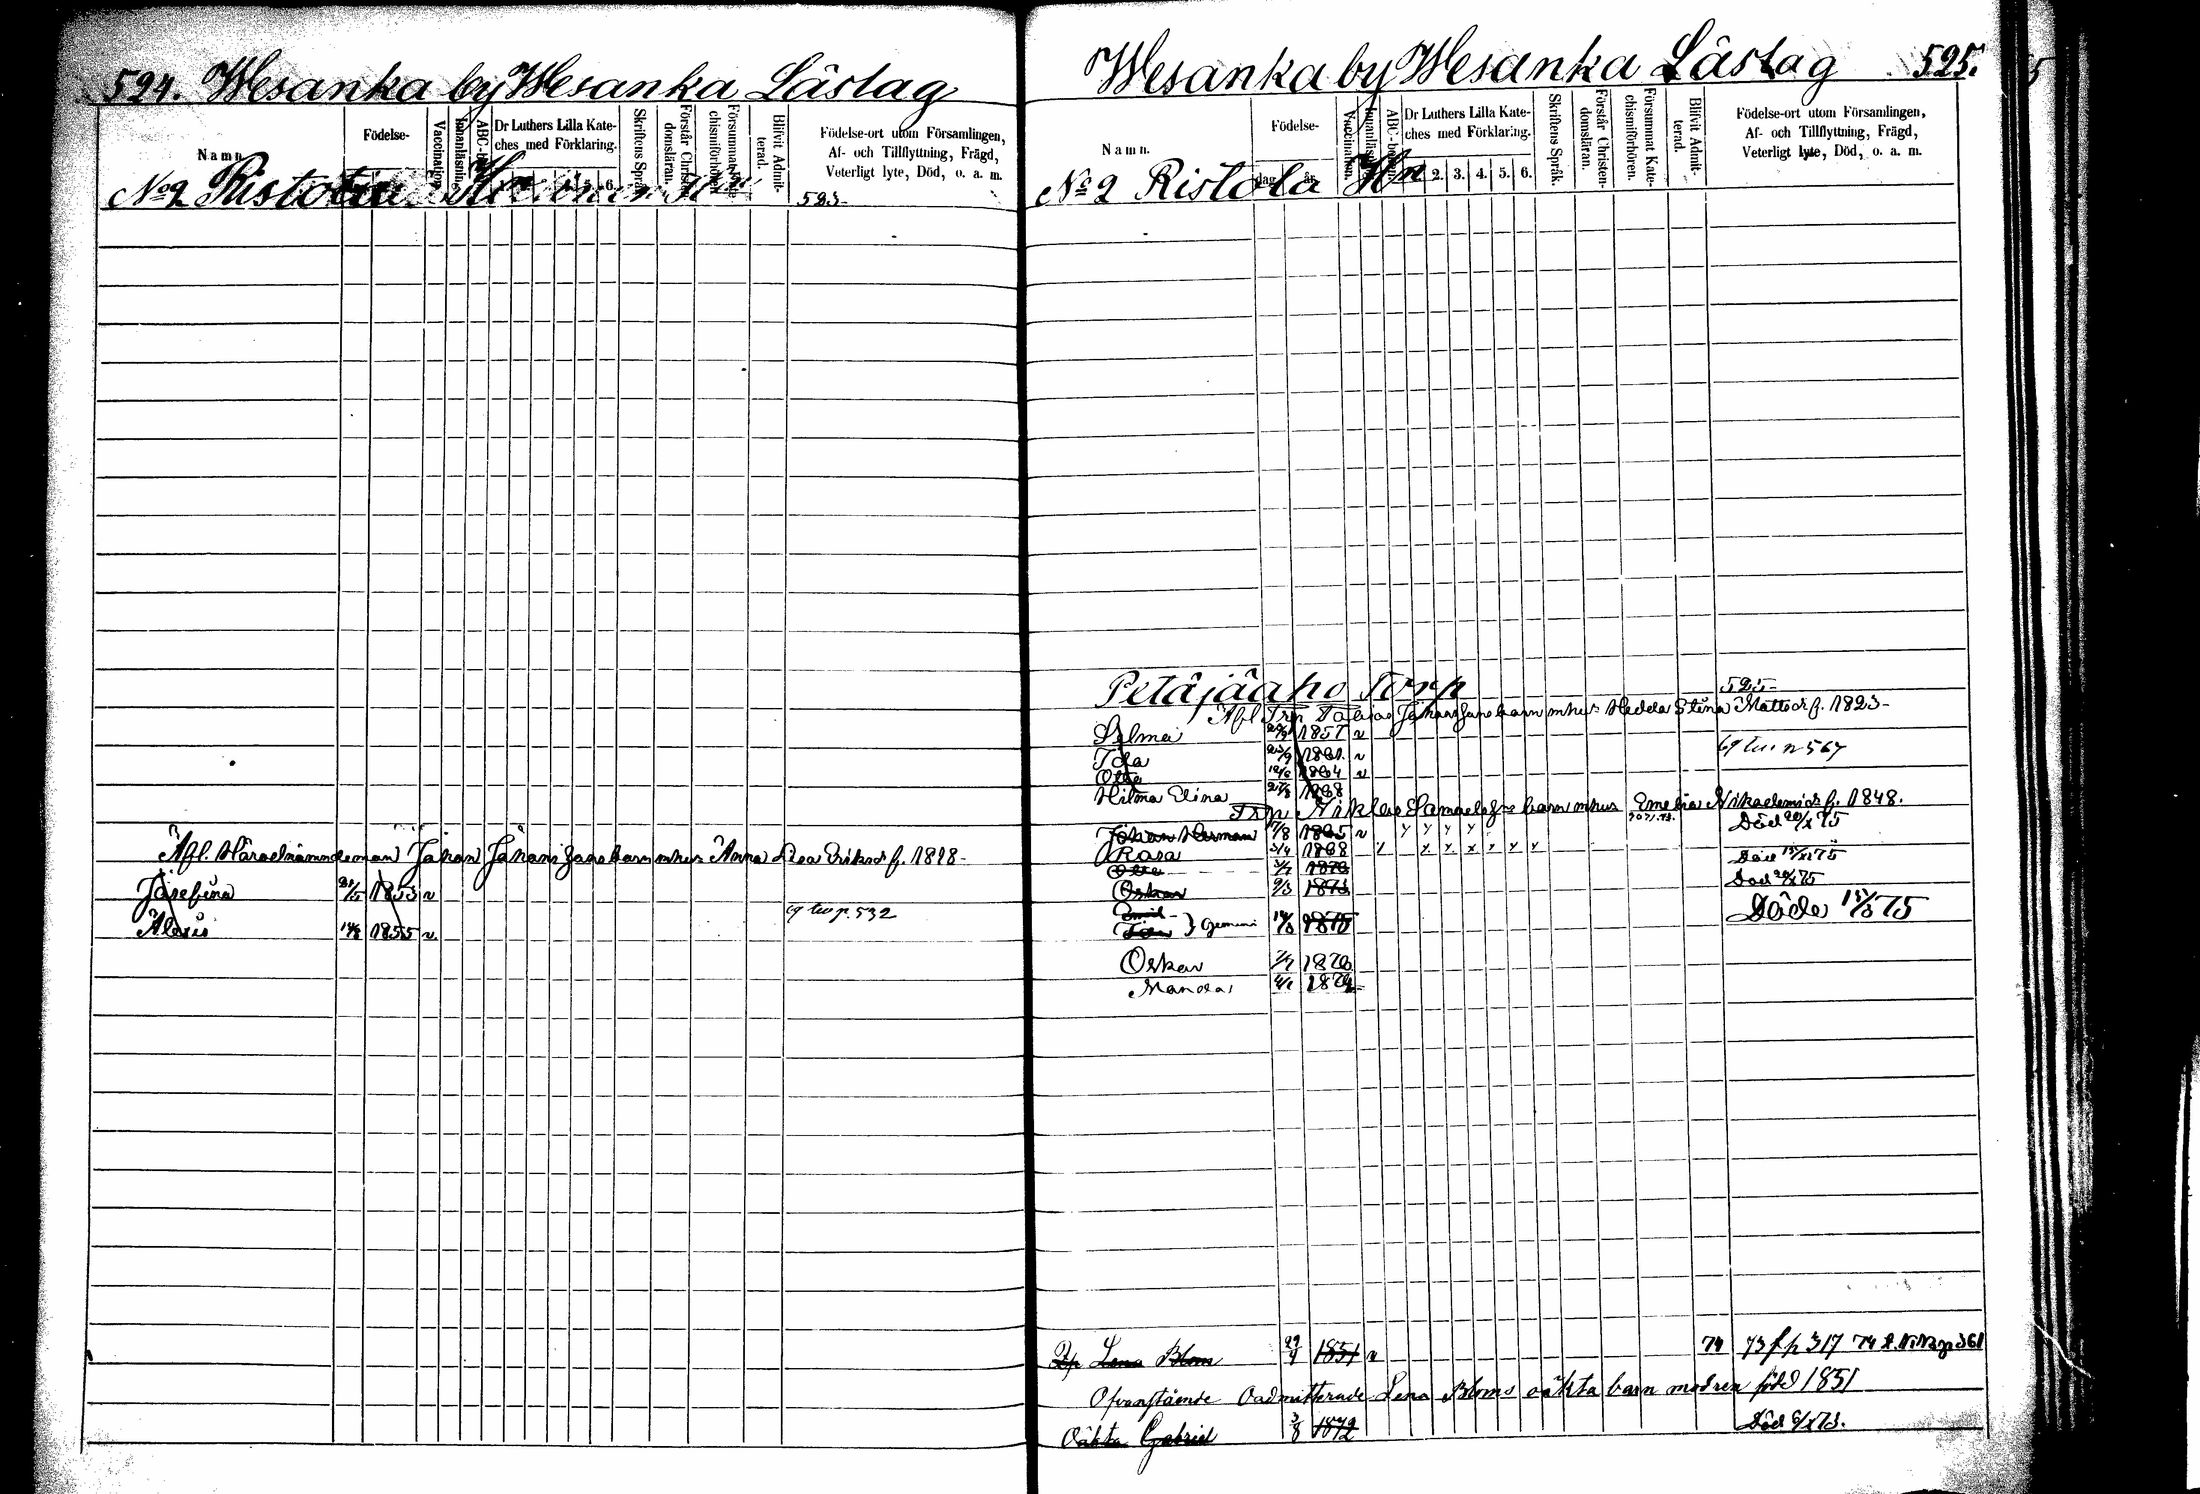 524. Wesanka by Wesanka Läslag
Namn.
Födelse-
Vaccination.
Innanläsning.
ABC-bok.
Dr Luthers Lilla Kate-
ches med Förklaring.
Skriftens Språk.
Förstår Christen-
domsläran.
Försummat Kate-
chismiförhören.
Blifvit Admit-
terad.
Födelse-ort utom Församlingen,
Af- och Tillflyttning, Frägd,
Veterligt lyte, Död, o. a. m.
No 2 Ristola
523-
Afl. Häradsnämndeman Johan Johanszons barn mhus Anna Lisa Eriksdr f. 1818-
Josefina 1853 v
tg tw p. 532
Alexis 14/8 1855 v
Wesanka by Wesanka Läslag 525.
Namn.
Födelse-
dag. år.
Vaccination.
Innanläsning.
ABC-bok.
Dr Luthers Lilla Kate-
ches med Förklaring.
2. 3. 4. 5. 6.
Skriftens Språk.
Förstår Christen-
domsläran.
Försummat Kate-
chismiförhören.
Blifvit Admit-
terad.
Födelse-ort utom Församlingen,
Af- och Tillflyttning, Frägd,
Veterligt lyte, Död, o. a. m.
No 2 Ristola Hn
Petäjäaho Torp 525-
Afl Trp Tobias Johanszons barn mhus Hedda Stina Mattsdr f. 1823-
Selma 1857 v
Ida 23/9 1861 v
Otto 1864 v
Hilma Elina 1868
Trp Niklas Samuelszns barn mhus Emelia Nikodemidr f. 1848.
Johan Herman 17/8 1865 v Död 20/x 75
Rosa 3/4 1868 Död 75
Otto 1870 Död 75
Oskar 9/3 1873
Emil } Gemini 14/8 1875 Döde 15/8 75
Oskar 1876
Manda
Lena Blom 29/4 1851 v 74 73 f p 317
Ofvanstående Oadmitterade Lena Bloms oäkta barn modren född 1851
Oäkta Gabriel 3/8 1872 Död 6/x 73.